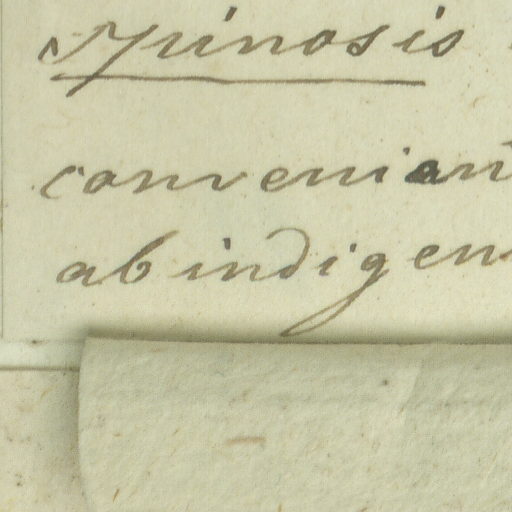 spinosis
conveniant
ab indigen